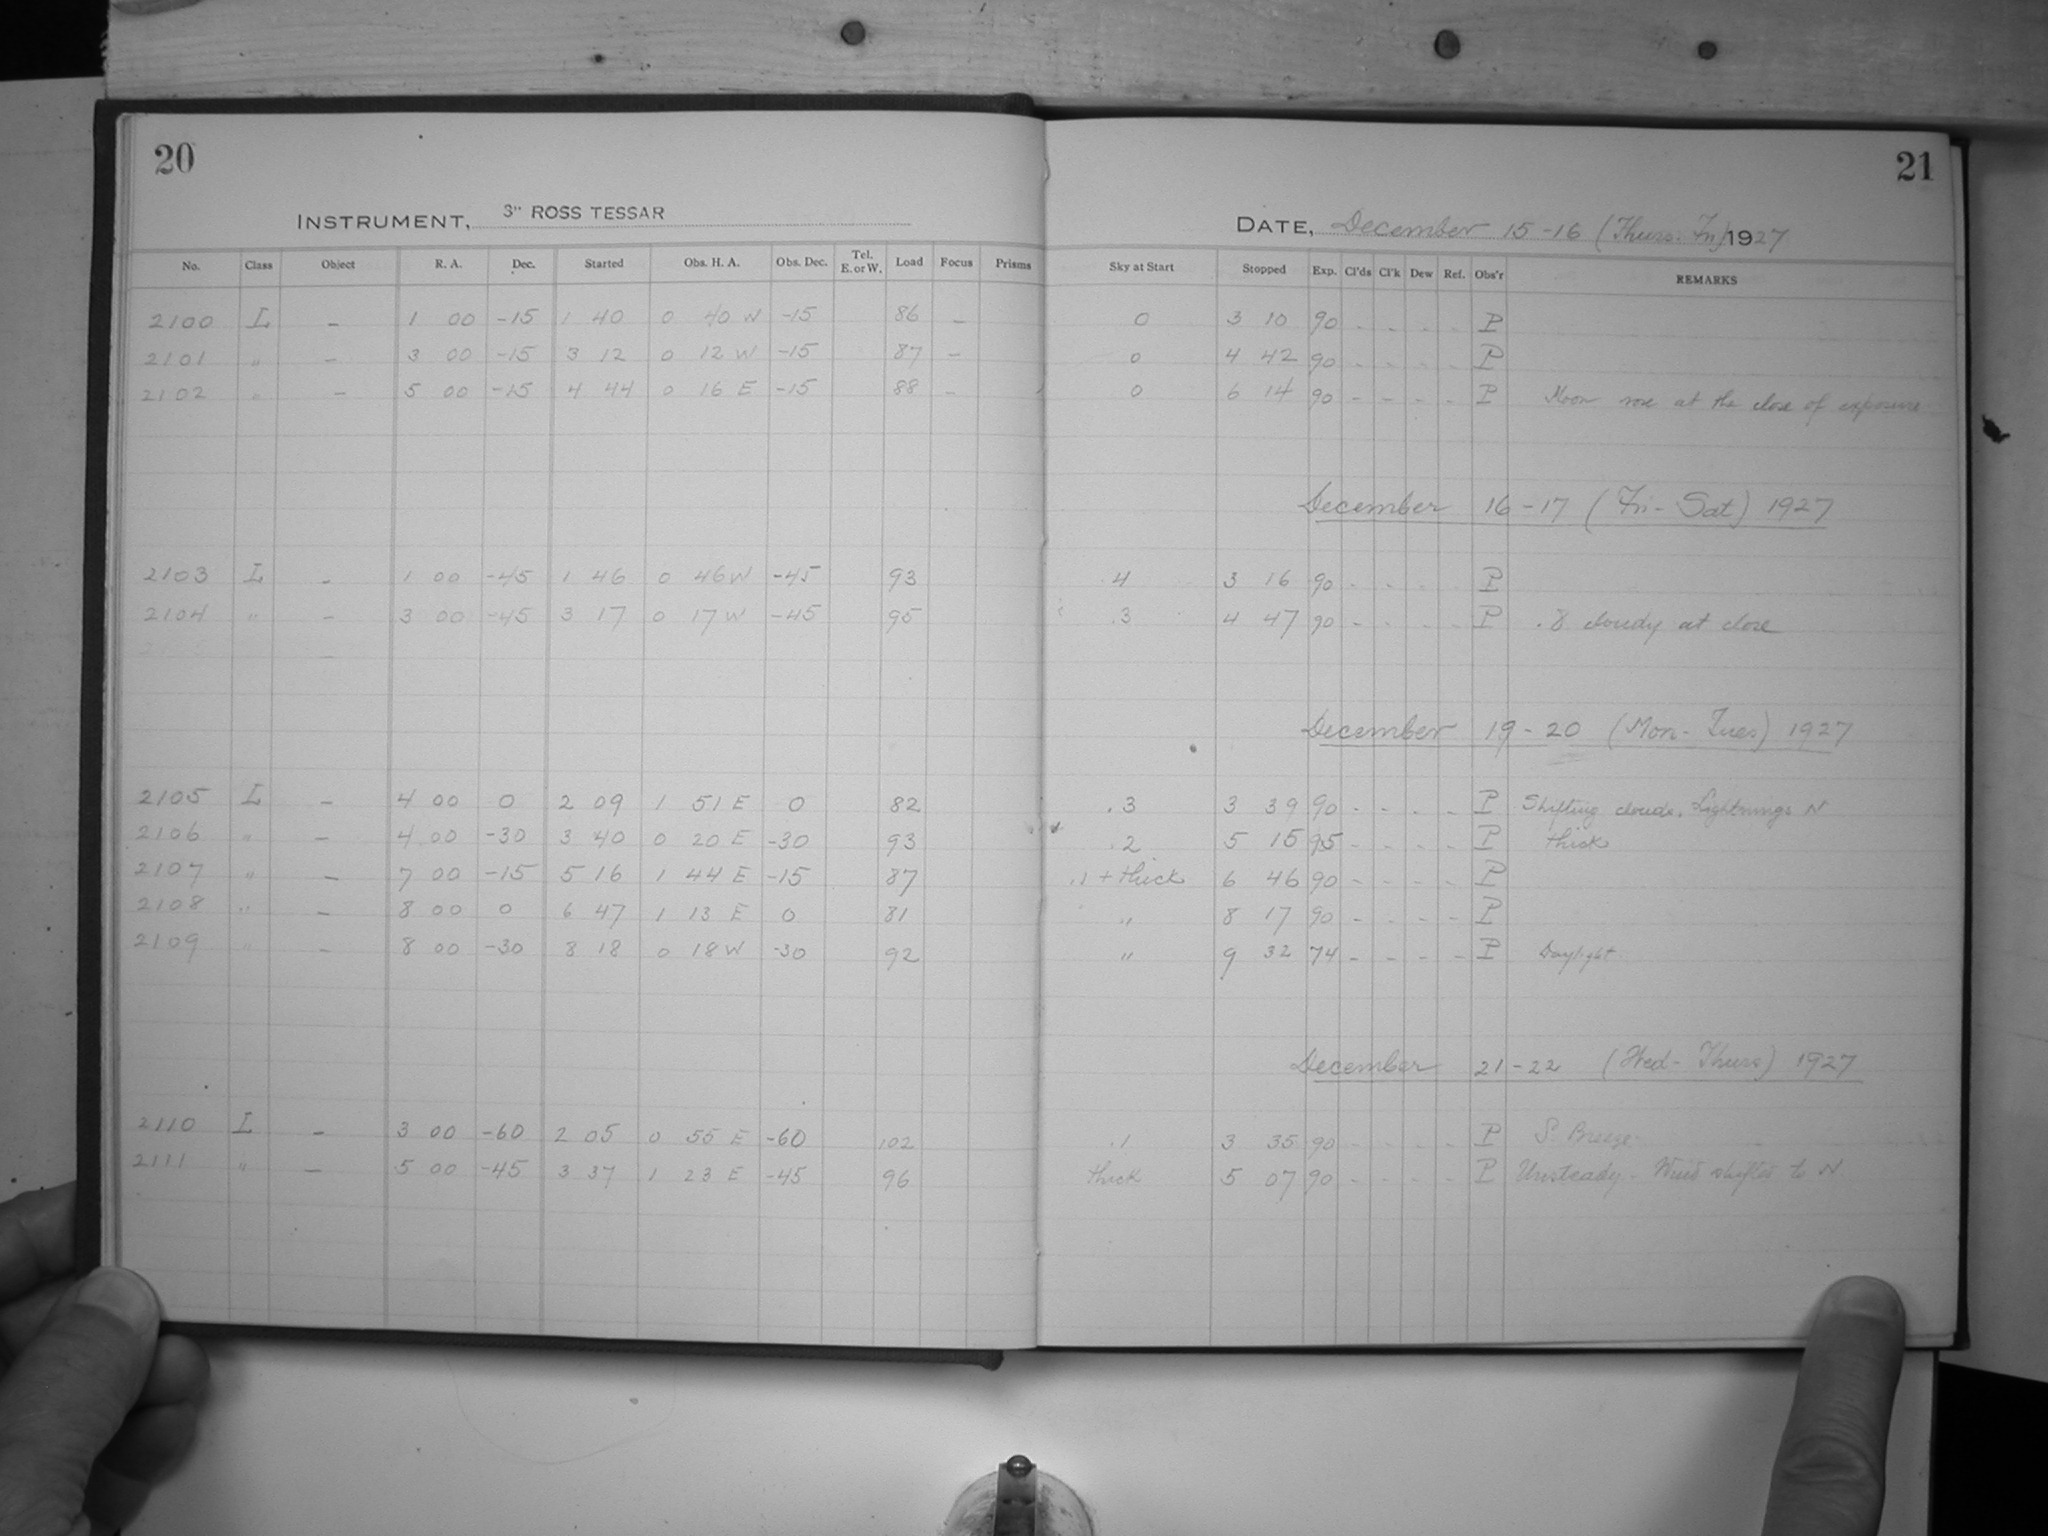 20
INSTRUMENT, 3" ROSS TESSAR
No. Class Object R. A. Dec. Started Obs. H. A. Obs. Dec. Tel. E. or W. Load Focus Prisms
2100 L – 1 00 -15 1 40 0 40 W -15 86 –
2101 " – 3 00 -15 3 12 0 12 W -15 87 –
2102 " – 5 00 -15 4 44 0 16 E -15 88 –
2103 L – 1 00 -45 1 46 0 46 W -45 93
2104 " – 3 00 -45 3 17 0 17 W -45 95
2105 L – 4 00 0 2 09 1 51 E 0 82
2106 " – 4 00 -30 3 40 0 20 E -30 93
2107 " – 7 00 -15 5 16 1 44 E -15 87
2108 " – 8 00 0 6 47 1 13 E 0 81
2109 " – 8 00 -30 8 18 0 18 W -30 92
2110 L – 3 00 -60 2 05 0 55 E -60 102
2111 " – 5 00 -45 3 37 1 23 E -45 96
21
DATE, December 15-16 (Thurs. Fri) 1927
Sky at Start Stopped Exp. Cl'ds Cl'k Dew Ref. Obs'r REMARKS
0 3 10 90 - - - - P
0 4 42 90 - - - - P
0 6 14 90 - - - - P Moon rose at the close of exposure
December 16-17 (Fri-Sat) 1927
.4 3 16 90 - - - - P
.3 4 47 90 - - - - P .8 cloudy at close
December 19-20 (Mon-Tues) 1927
.3 3 39 90 - - - - P Shifting clouds. Lightnings N
.2 5 15 95 - - - - P thick
.1 + thick 6 46 90 - - - - P
" 8 17 90 - - - - P
" 9 32 74 - - - - P Daylight
December 21-22 (Wed-Thurs) 1927
.1 3 35 90 - - - - P S. Breeze
thick 5 07 90 - - - - P Unsteady - Wind shifted to N